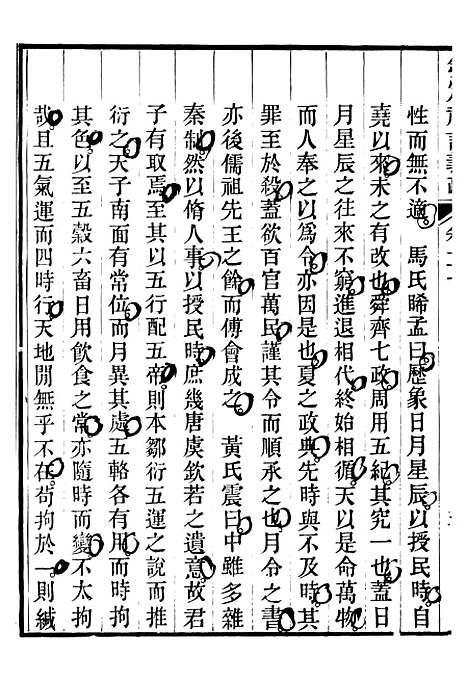 性而無不適　馬氏晞孟曰歷象日月星辰以授民時自
堯以來未之有改也舜齊七政周用五紀其究一也蓋日
月星辰之往來不窮進退相代終始相循天以是命萬物
而人奉之以為令亦因是也夏之政典先時與不及時其
罪至於殺蓋欲百官萬民謹其令而順承之也月令之書
亦後儒祖先王之餘而傅會成之　黃氏震曰中雖多雜
秦制然以脩人事以授民時庶幾唐虞欽若之遺意故君
子有取焉至其以五行配五帝則本鄒衍五運之說而推
衍之天子南面有常位而月異其處五輅各有用而時拘
其色以至五穀六畜日用飲食之常亦隨時而變不太拘
哉且五氣運而四時行天地閒無乎不在苟拘於一則緘